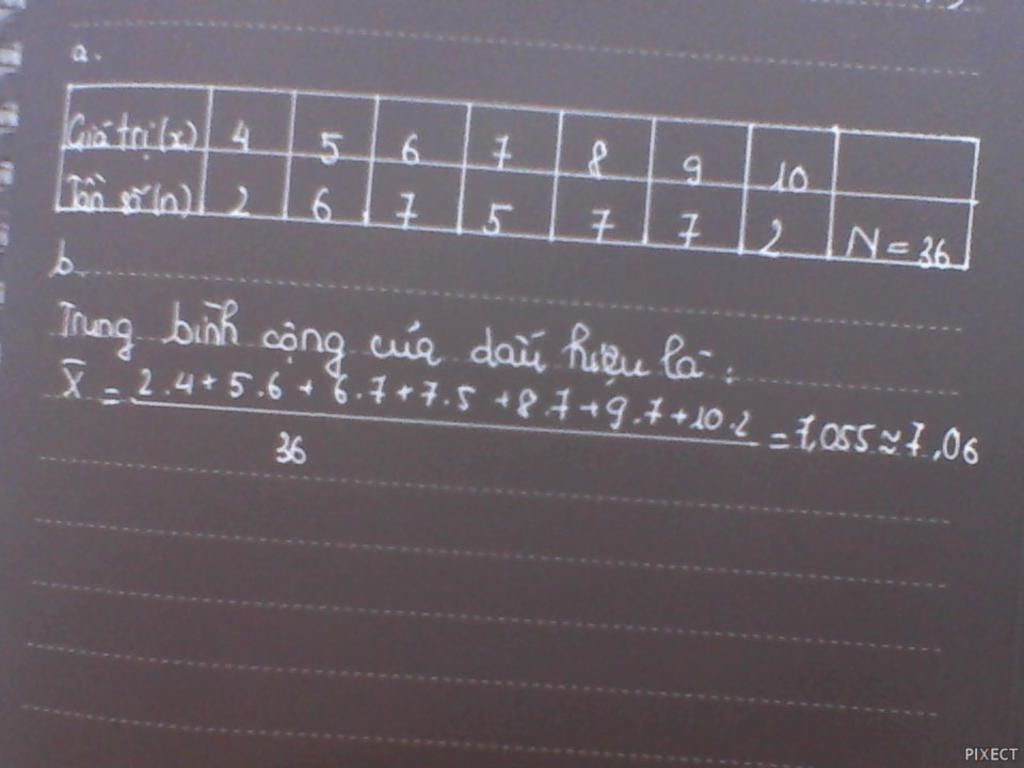 a.
Giá trị (x) 4 5 6 7 8 9 10
Tần số (n) 2 6 7 5 7 7 2 N = 36
b.
Trung bình cộng của dấu hiệu là :
X̄ = 2.4 + 5.6 + 6.7 + 7.5 + 8.7 + 9.7 + 10.2 = 7,055 ≈ 7,06
36
PIXECT